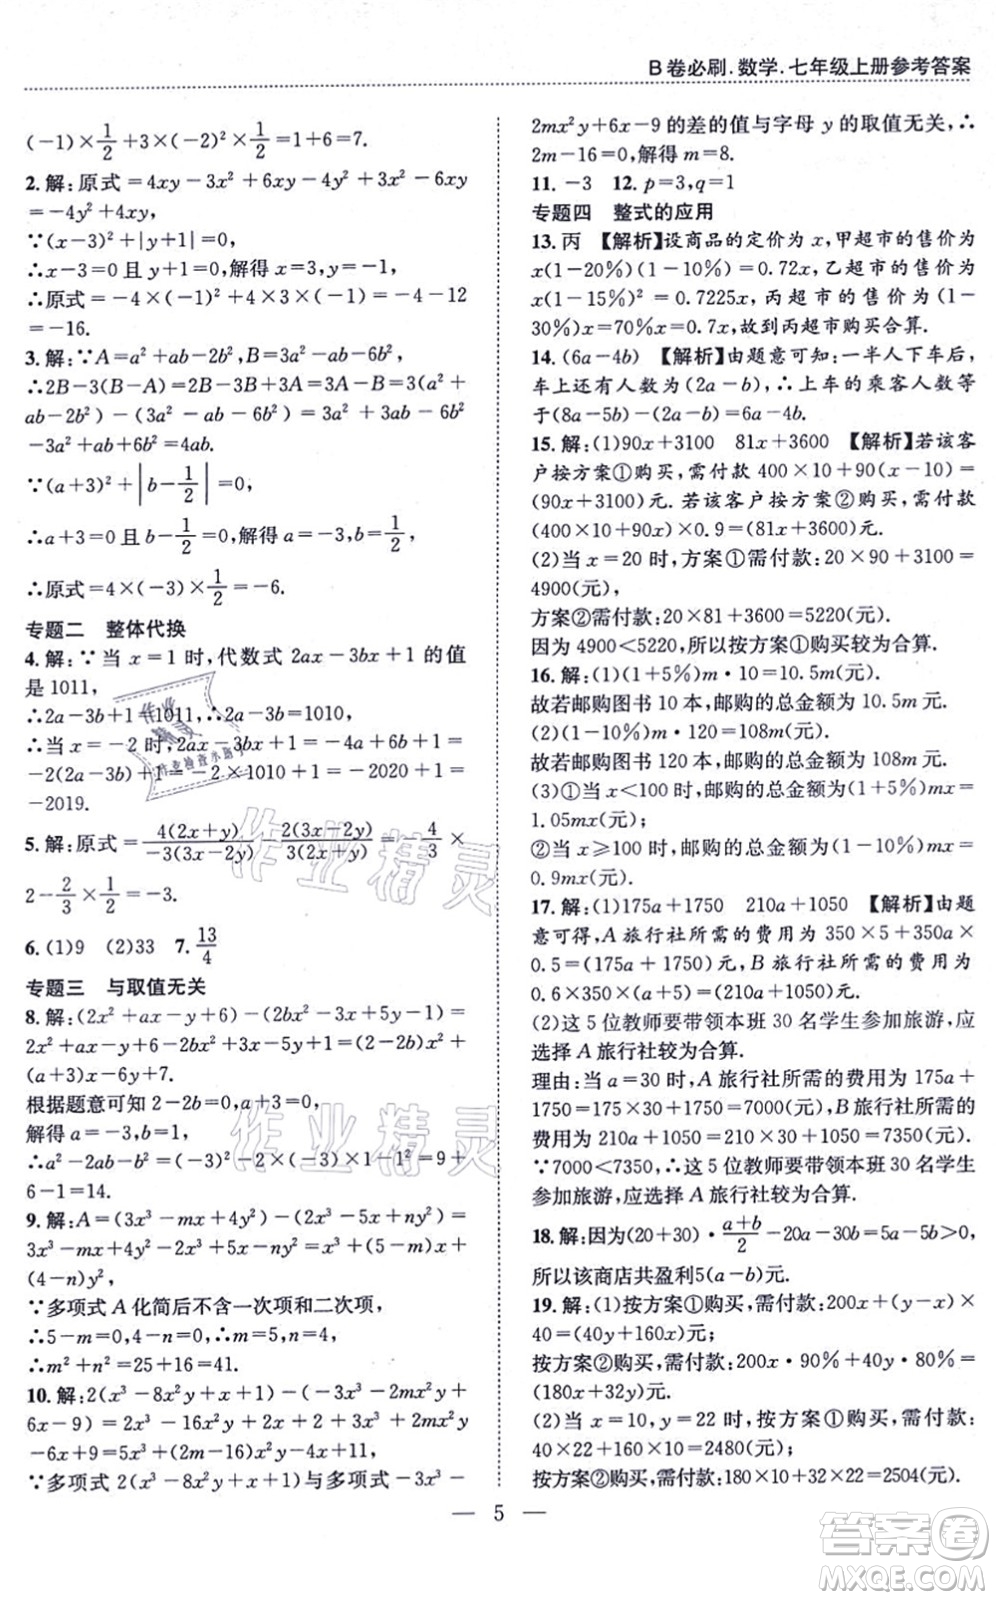 B卷必刷.数学.七年级上册参考答案
(-1)×1/2+3×(-2)²×1/2=1+6=7.
2.解:原式=4xy-3x²+6xy-4y²+3x²-6xy
=-4y²+4xy,
∵(x-3)²+|y+1|=0,
∴x-3=0且y+1=0,解得x=3,y=-1,
∴原式=-4×(-1)²+4×3×(-1)=-4-12
=-16.
3.解:∵A=a²+ab-2b²,B=3a²-ab-6b²,
∴2B-3(B-A)=2B-3B+3A=3A-B=3(a²+
ab-2b²)-(3a²-ab-6b²)=3a²+3ab-6b²
-3a²+ab+6b²=4ab.
∵(a+3)²+|b-1/2|=0,
∴a+3=0且b-1/2=0,解得a=-3,b=1/2,
∴原式=4×(-3)×1/2=-6.
专题二 整体代换
4.解:∵当x=1时,代数式2ax-3bx+1的值
是1011,
∴2a-3b+1=1011,∴2a-3b=1010,
∴当x=-2时,2ax-3bx+1=-4a+6b+1=
-2(2a-3b)+1=-2×1010+1=-2020+1=
-2019.
5.解:原式=4(2x+y)/-3(3x-2y) · 2(3x-2y)/3(2x+y)=-4/3×
2-2/3×1/1=-3.
6.(1)9 (2)33 7.13/4
专题三 与取值无关
8.解:(2x²+ax-y+6)-(2bx²-3x+5y-1)=
2x²+ax-y+6-2bx²+3x-5y+1=(2-2b)x²+
(a+3)x-6y+7.
根据题意可知2-2b=0,a+3=0,
解得a=-3,b=1,
∴a²-2ab-b²=(-3)²-2×(-3)×1-1²=9+
6-1=14.
9.解:A=(3x³-mx+4y²)-(2x³-5x+ny²)=
3x³-mx+4y²-2x³+5x-ny²=x³+(5-m)x+
(4-n)y²,
∵多项式A化简后不含一次项和二次项,
∴5-m=0,4-n=0,∴m=5,n=4,
∴m²+n²=25+16=41.
10.解:2(x³-8x²y+x+1)-(-3x³-2mx²y+
6x-9)=2x³-16x²y+2x+2+3x³+2mx²y
-6x+9=5x³+(2m-16)x²y-4x+11.
∵多项式2(x³-8x²y+x+1)与多项式-3x³-
2mx²y+6x-9的差的值与字母y的取值无关,∴
2m-16=0,解得m=8.
11.-3 12.p=3,q=1
专题四 整式的应用
13.丙 【解析】设商品的定价为x,甲超市的售价为
x(1-20%)(1-10%)=0.72x,乙超市的售价为
x(1-15%)²=0.7225x,丙超市的售价为(1-
30%)x=70%x=0.7x,故到丙超市购买合算.
14.(6a-4b) 【解析】由题意可知:一半人下车后,
车上还有人数为(2a-b),∴上车的乘客人数等
于(8a-5b)-(2a-b)=6a-4b.
15.解:(1)90x+3100 81x+3600 【解析】若该客
户按方案①购买,需付款400×10+90(x-10)=
(90x+3100)元.若该客户按方案②购买,需付款
(400×10+90x)×0.9=(81x+3600)元.
(2)当x=20时,方案①需付款:20×90+3100=
4900(元),
方案②需付款:20×81+3600=5220(元).
因为4900<5220,所以按方案①购买较为合算.
16.解:(1)(1+5%)m·10=10.5m(元).
故若邮购图书10本,邮购的总金额为10.5m元.
(2)(1-10%)m·120=108m(元).
故若邮购图书120本,邮购的总金额为108m元.
(3)①当x<100时,邮购的总金额为(1+5%)mx=
1.05mx(元);
②当x⩾100时,邮购的总金额为(1-10%)mx=
0.9mx(元).
17.解:(1)175a+1750 210a+1050 【解析】由题
意可得,A旅行社所需的费用为350×5+350×
0.5×a=(175a+1750)元,B旅行社所需的费用为
0.6×350×(a+5)=(210a+1050)元.
(2)这5位教师要带领本班30名学生参加旅游,应
选择A旅行社较为合算.
理由:当a=30时,A旅行社所需的费用为175a+
1750=175×30+1750=7000(元),B旅行社所需的
费用为210a+1050=210×30+1050=7350(元).
∵7000<7350,∴这5位教师要带领本班30名学生
参加旅游,应选择A旅行社较为合算.
18.解:因为(20+30)·a+b/2-20a-30b=5a-5b>0,
所以该商店共盈利5(a-b)元.
19.解:(1)按方案①购买,需付款:200x+(y-x)×
40=(40y+160x)元;
按方案②购买,需付款:200x·90%+40y·80%=
(180x+32y)元.
(2)当x=10,y=22时,按方案①购买,需付款:
40×22+160×10=2480(元);
按方案②购买,需付款:180×10+32×22=2504(元).
— 5 —
作业精灵
作业精灵
作业检查小助手
答案圈
MXQE.COM